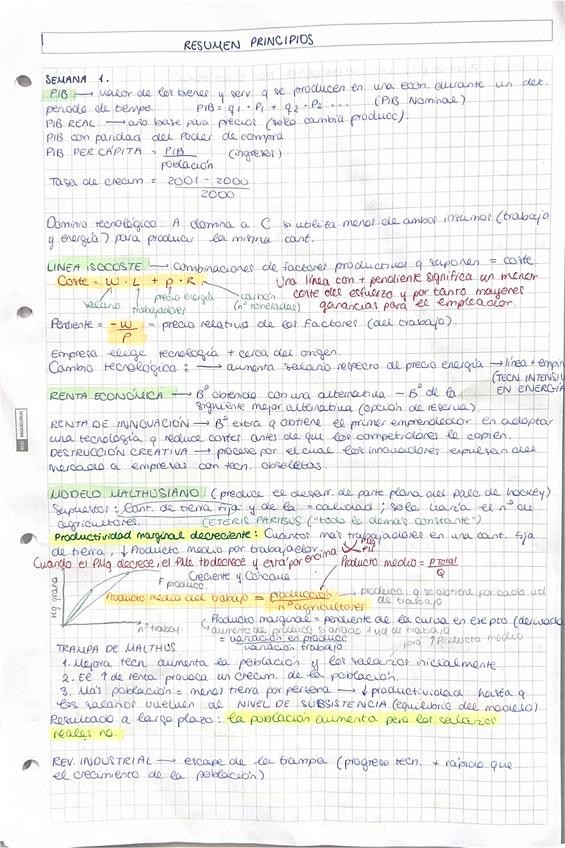 RESUMEN PRINCIPIOS
SEMANA 1.
PIB → valor de los bienes y serv. q se producen en una econ. durante un det.
periodo de tiempo. PIB = q1 · P1 + q2 · P2 ... (PIB Nominal)
PIB REAL → año base para precios (solo cambia producc).
PIB con paridad del Poder de compra
PIB PER CÁPITA = PIB (ingresos)
población
Tasa de crecim = 2001 - 2000
2000
Dominio tecnológico: A domina a C si utiliza menos de ambos insumos (trabajo
y energía) para producir la misma cant.
LINEA ISOCOSTE → combinaciones de factores productivos q suponen = coste.
Coste = W · L + p · R
Una línea con + pendiente significa un menor
coste del esfuerzo y por tanto mayores
ganancias para el empleador.
salario
trabajadores
precio energía
carbón
(nº toneladas)
Pendiente = -W = precio relativo de los factores (del trabajo).
P
Empresa elege tecnología + cerca del origen.
Cambio tecnológico: → aumenta salario respecto de precio energía → línea + empin
(TECN. INTENSIV
EN ENERGÍA
RENTA ECONÓMICA → Bº obtenido con una alternativa - Bº de la
siguiente mejor alternativa (opción de reserva).
RENTA DE INNOVACIÓN → Bº extra q obtiene el primer emprendedor en adoptar
una tecnología q reduce costes antes de que los competidores la copien.
DESTRUCCIÓN CREATIVA → proceso por el cual los innovadores expulsan del
mercado a empresas con tecn. obsoletas.
MODELO MALTHUSIANO (predice el desarr. de parte plana del palo de hockey)
Supuestos: Cant. de tierra fija y de la = calidad; solo varía el nº de
agricultores. CETERIS PARIBUS ("todo lo demás constante")
Productividad marginal decreciente: Cuantos más trabajadores en una cant. fija
de tierra, ↓ Producto medio por trabajador.
Cuando el PMg decrece, el PMe tb decrece y está por encima
PMg
Producto medio = P TOTAL
Q
Kg grano
Creciente y Cóncava
F. producc.
Producto medio del trabajo = producción
nº agricultores
producc. q se obtiene por cada ud
de trabajo
nº trabaj.
Producto marginal = pendiente de la curva en ese pto (derivada
aumento de producc si añado 1 ud de trabajo
= variación en producc
variación trabajo
↑ Producto medio
TRAMPA DE MALTHUS
1. Mejora tecn. aumenta la población y los salarios inicialmente.
2. El ↑ de renta provoca un crecim. de la población.
3. Más población = menos tierra por persona → ↓ productividad hasta q
los salarios vuelven al NIVEL DE SUBSISTENCIA (equilibrio del modelo)
Resultado a largo plazo: la población aumenta pero los salarios
reales no.
REV. INDUSTRIAL → escape de la trampa (progreso tecn. + rápido que
el crecimiento de la población).